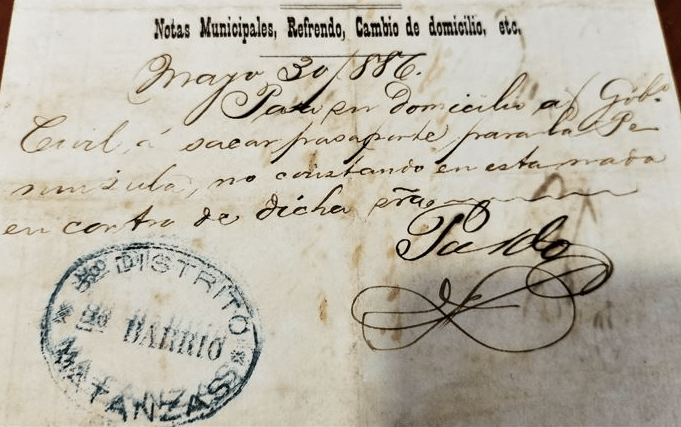 Notas Municipales, Refrendo, Cambio de domicilio, etc.
Mayo 30/886.
Pasa su Domicilio al Gobo.
Civil, á sacar pasaporte para la Pe-
ninsula, no constando en esta nada
en contra de dicha Sra.
Pardo
DISTRITO
BARRIO
MATANZAS